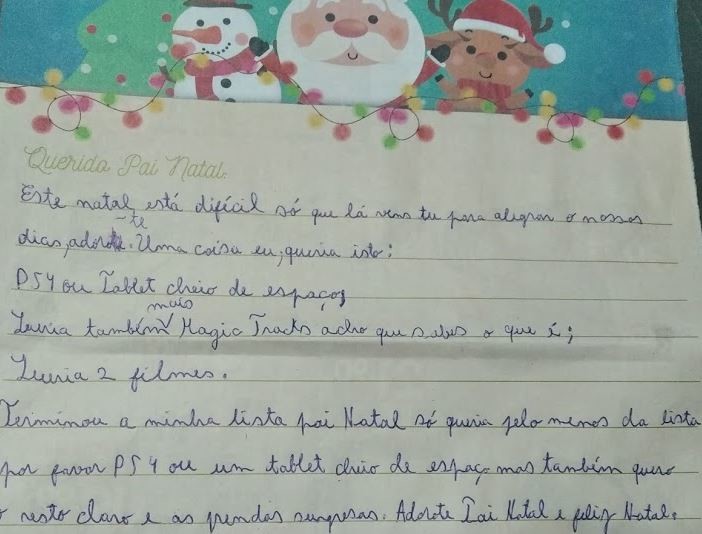 Querido Pai Natal:
Este natal está difícil só que lá vens tu para alegrar o nossos
dias, adoro-te. Uma coisa eu, queria isto:
PS4 ou Tablet cheio de espaço;
Queria também mais Magic Tracks acho que sabes o que é;
Queria 2 filmes.
Terminou a minha lista pai Natal só queria pelo menos da lista
por favor PS4 ou um tablet cheio de espaço mas também quero
o resto claro e as prendas surpresas. Adorote Pai Natal e feliz Natal.